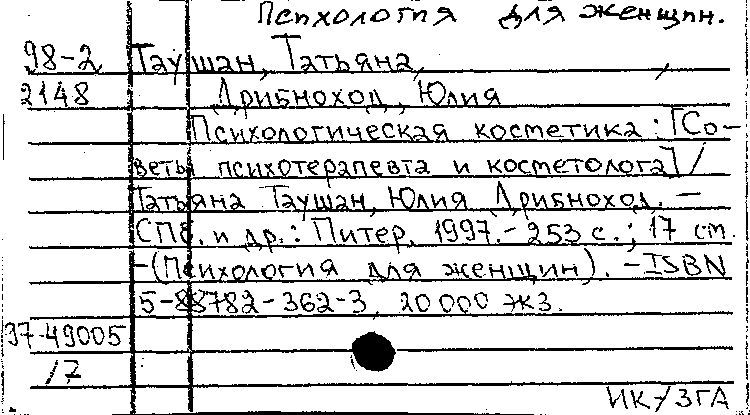 Психология для женщин.
98-2 Таушан, Татьяна,
2148 Дрибноход, Юлия
Психологическая косметика : [Со-
веты психотерапевта и косметолога] /
Татьяна Таушан, Юлия Дрибноход. –
СПб. и др. : Питер, 1997. - 253 с. ; 17 см.
-(Психология для женщин). - ISBN
5-88782-362-3, 20 000 экз.
97-49005
/7
ИК/ЗГА